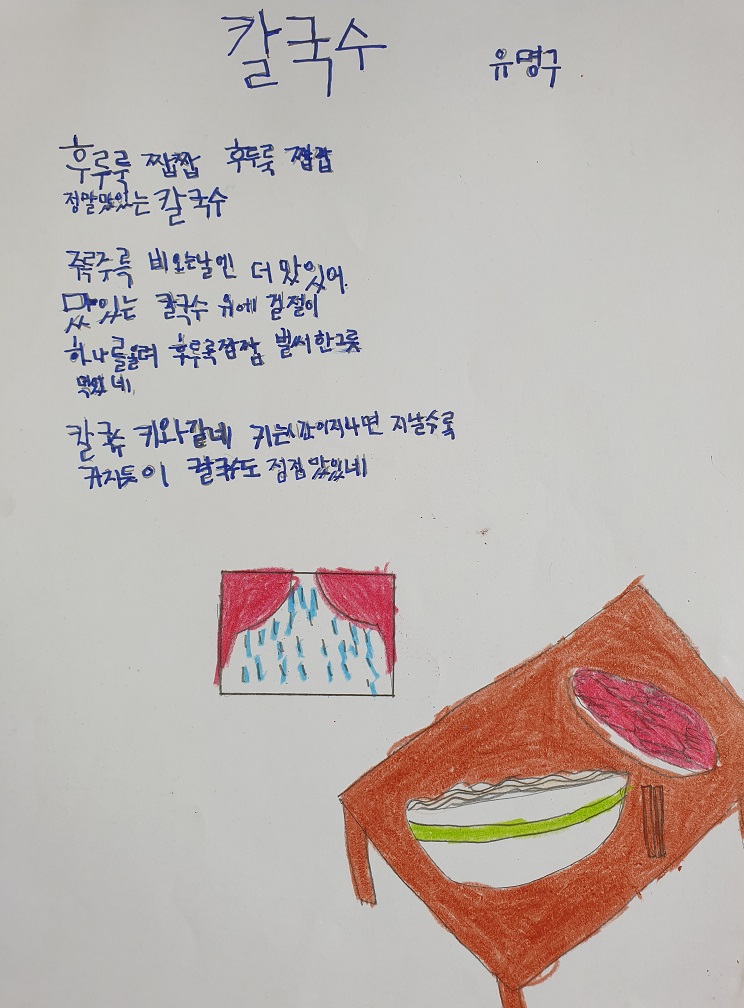 칼국수
유명구
후루룩 짭짭 후두룩 짭짭
정말맛있는 칼국수
주륵주륵 비오는날엔 더 맛있어.
맛있는 칼국수 위에 겉절이
하나를올려 후루룩짭짭 벌써한그릇
먹었네
칼국수 키와같네 키는시간이지나면 지날수록
커지듯이 칼국수도 점점 맛있네